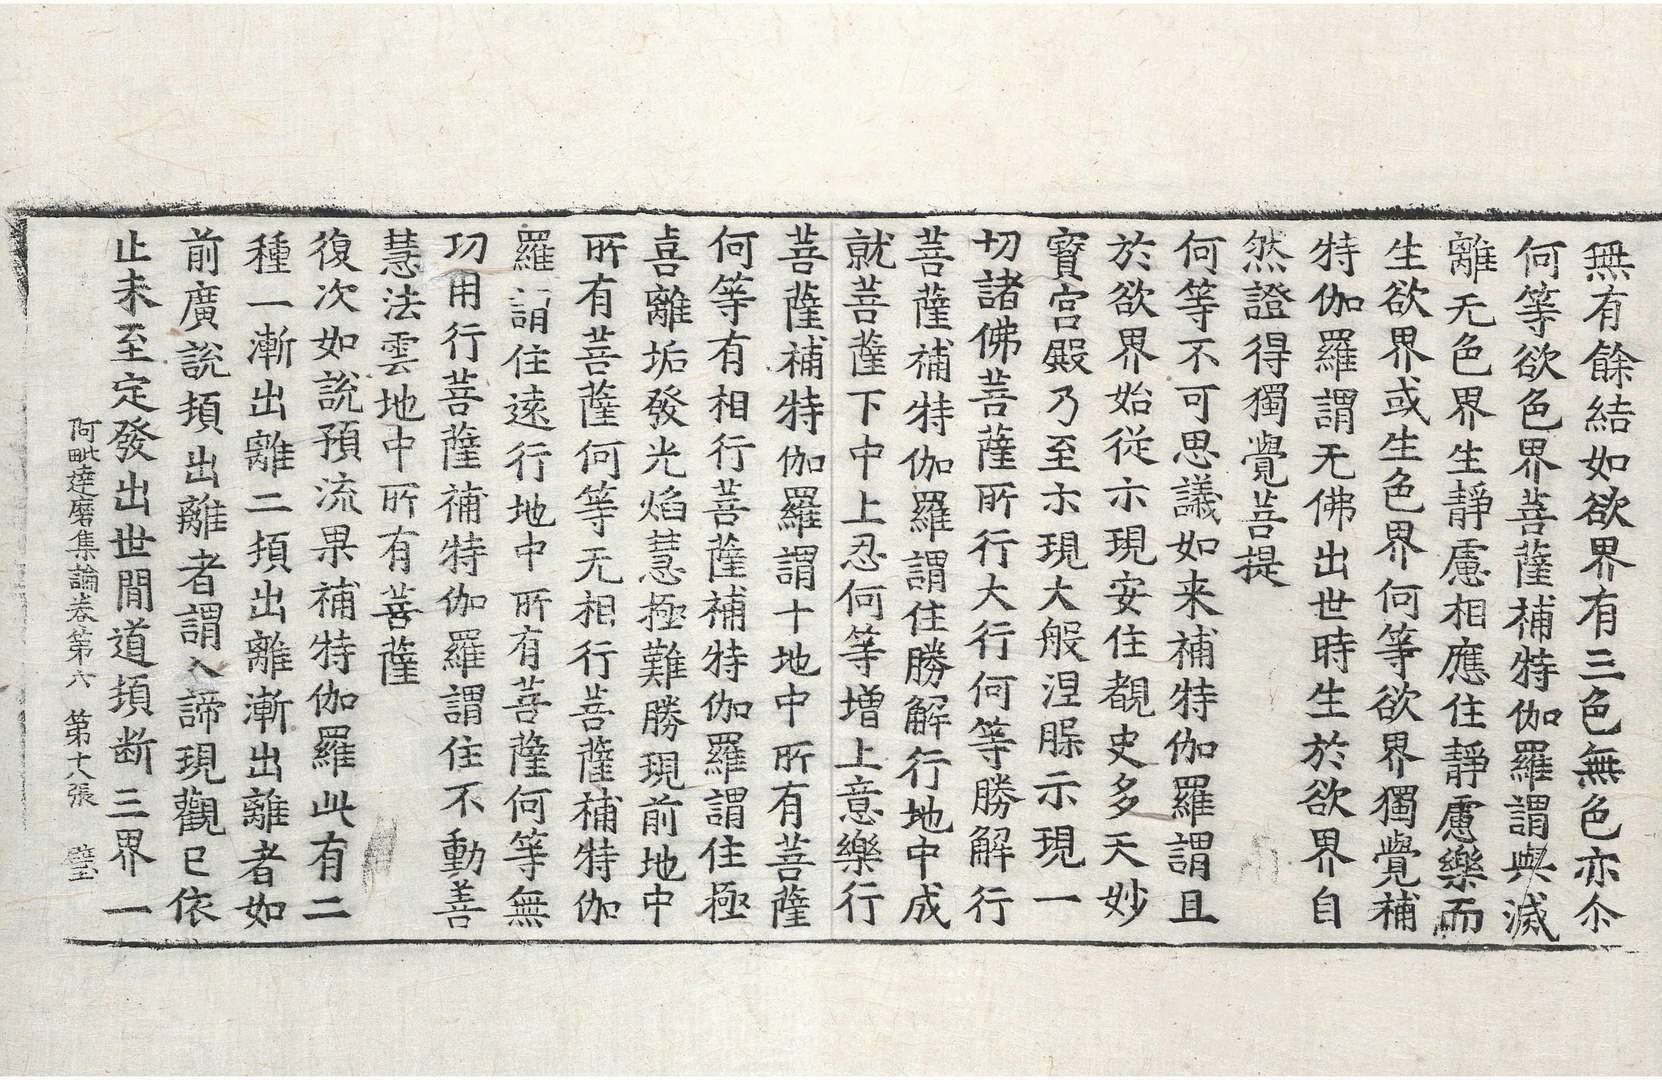 無有餘結如欲界有三色無色亦尒
何等欲色界菩薩補特伽羅謂與滅
離无色界生靜慮相應住靜慮樂而
生欲界或生色界何等欲界獨覺補
特伽羅謂无佛出世時生於欲界自
然證得獨覺菩提
何等不可思議如来補特伽羅謂且
於欲界始從示現安住覩史多天妙
寳宫殿乃至示現大般涅槃示現一
切諸佛菩薩所行大行何等勝解行
菩薩補特伽羅謂住勝解行地中成
就菩薩下中上忍何等增上意樂行
菩薩補特伽羅謂十地中所有菩薩
何等有相行菩薩補特伽羅謂住極
喜離垢發光焰慧極難勝現前地中
所有菩薩何等无相行菩薩補特伽
羅謂住遠行地中所有菩薩何等無
功用行菩薩補特伽羅謂住不動善
慧法雲地中所有菩薩
復次如說預流果補特伽羅此有二
種一漸出離二頓出離漸出離者如
前廣說頓出離者謂入諦現觀已依
止未至定發出世間道頓断三界一
阿毗達磨集論卷第六 第十八張 璧